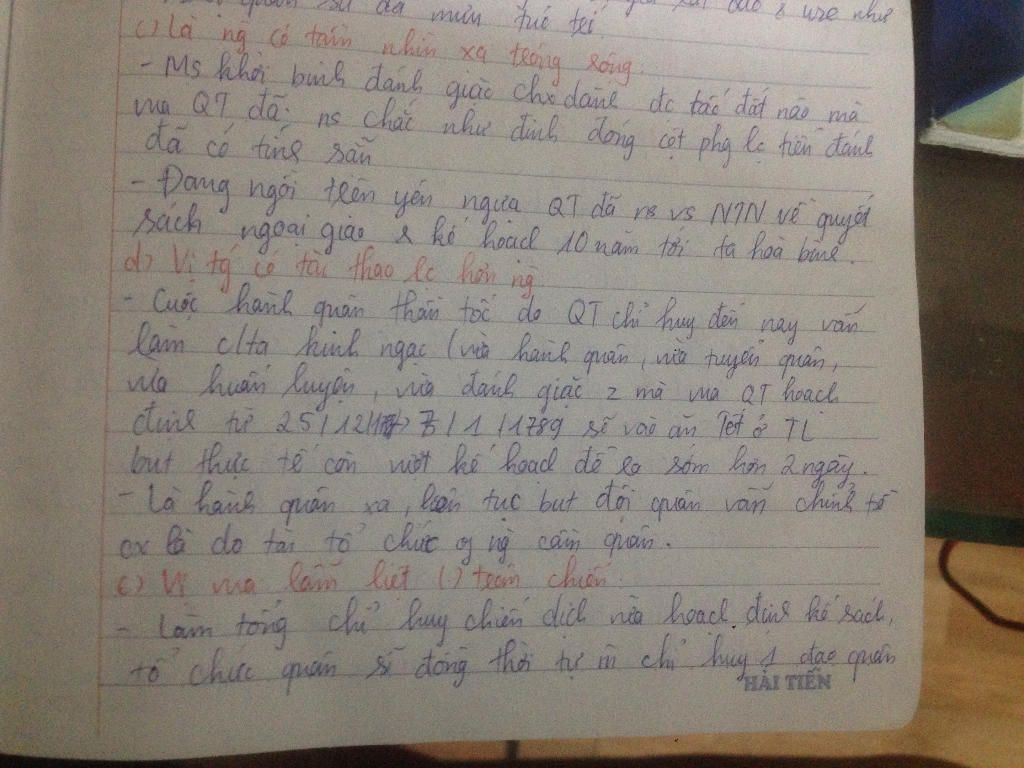 quân sự đã mưu
c) Là ng có tầm nhìn xa trông rộng.
- Ms khởi binh đánh giặc chx dành đc tấc đất nào mà
vua QT đã ns chắc như đinh đóng cột phg lc tiến đánh
đã có tính sẵn
- Đang ngồi trên yên ngựa QT đã ns vs NTN về quyết
sách ngoại giao & kế hoạch 10 năm tới ta hoà bình.
d) Vị tg có tài thao lc hơn ng
- Cuộc hành quân thần tốc do QT chỉ huy đến nay vẫn
làm c/ta kinh ngạc (vừa hành quân, vừa tuyển quân,
vừa huấn luyện, vừa đánh giặc z mà vua QT hoạch
định từ 25/12 7/1/1789 sẽ vào ăn Tết ở TL
but thực tế còn vượt kế hoạch đề ra sớm hơn 2 ngày.
- Là hành quân xa, liên tục but đội quân vẫn chỉnh tề
cx là do tài tổ chức of ng cầm quân.
e) Vị vua lẫm liệt (.) trận chiến.
- Làm tổng chỉ huy chiến dịch vừa hoạch định kế sách,
tổ chức quân sĩ đồng thời tự m chỉ huy 1 đạo quân
HẢI TIẾN